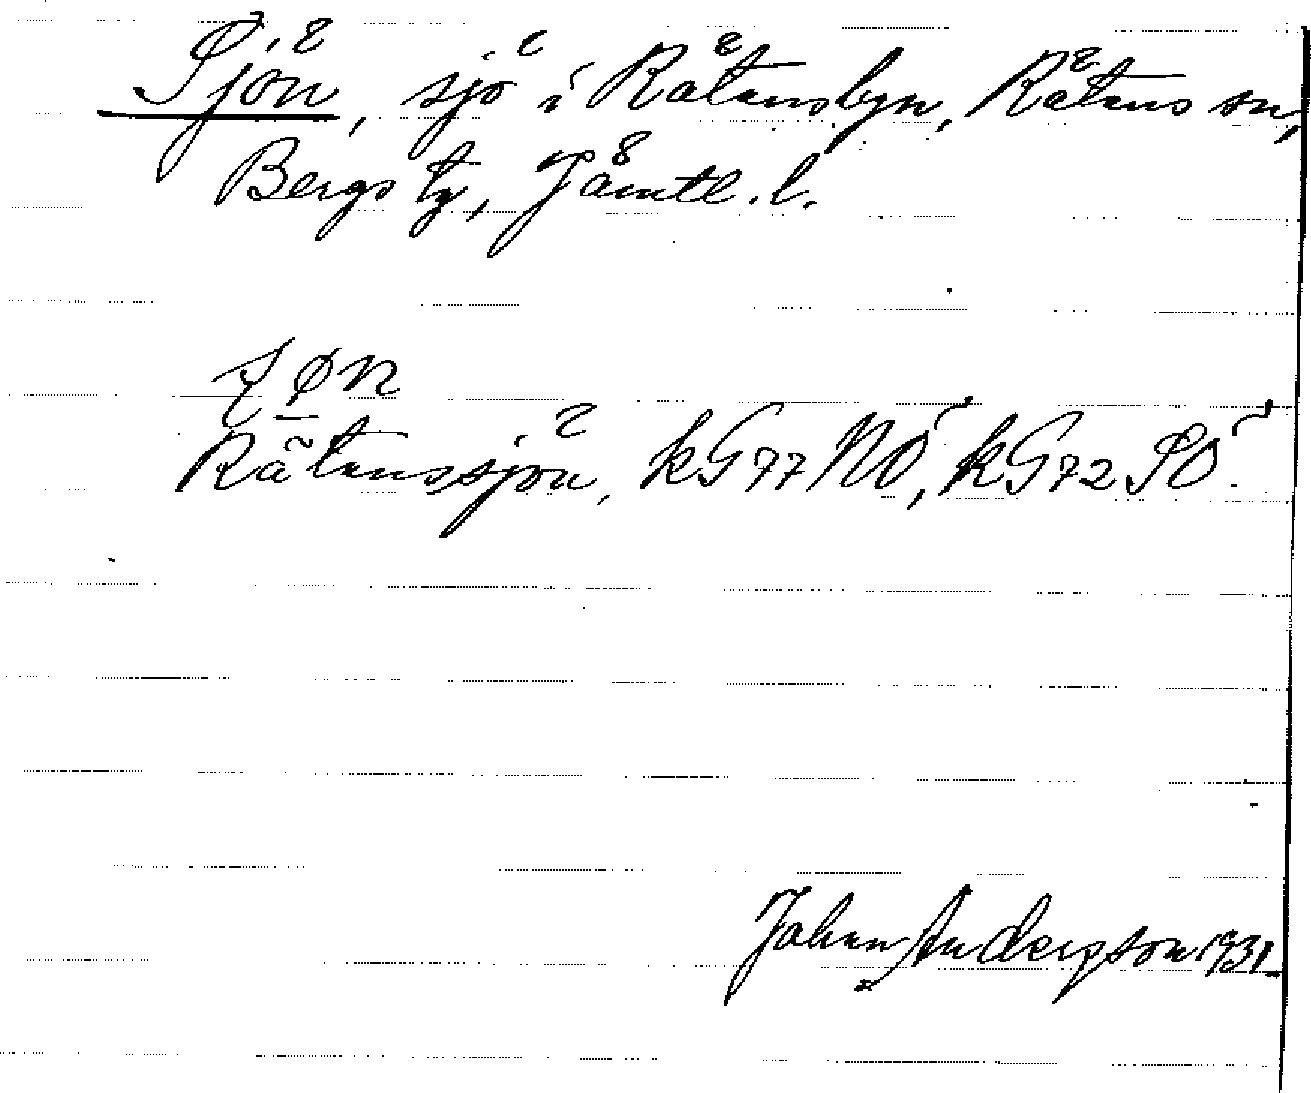 Sjön, sjö i Rätansbyn, Rätans sn,
Bergs tg, Jämtl. l.
ʃøn
Rätanssjön, kG77NO, kG72SO.
Johan Anderson 1931